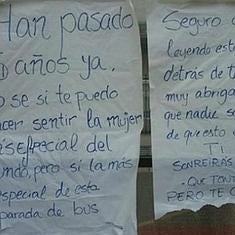 Han pasado
años ya.
o se si te puedo
cer sentir la mujer
especial del
ndo, pero sí la más
special de esta
parada de bus
Seguro
leyendo est
detrás de t
muy abriga
que nadie s
de que esto
Ti
SONREIRÁS
- QUE TON
PERO TE Q